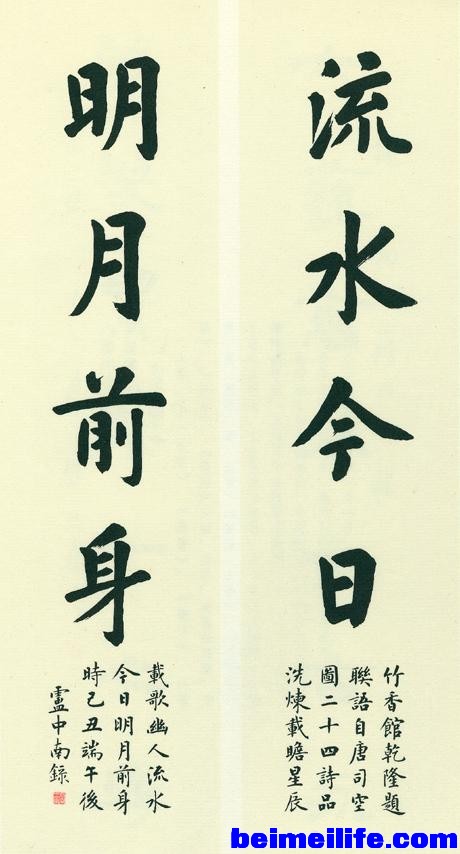 流水今日
竹香館乾隆題
聯語自唐司空
圖二十四詩品
洗煉載瞻星辰
明月前身
載歌幽人流水
今日明月前身
時己丑端午後
盧中南錄
beimeilife.com